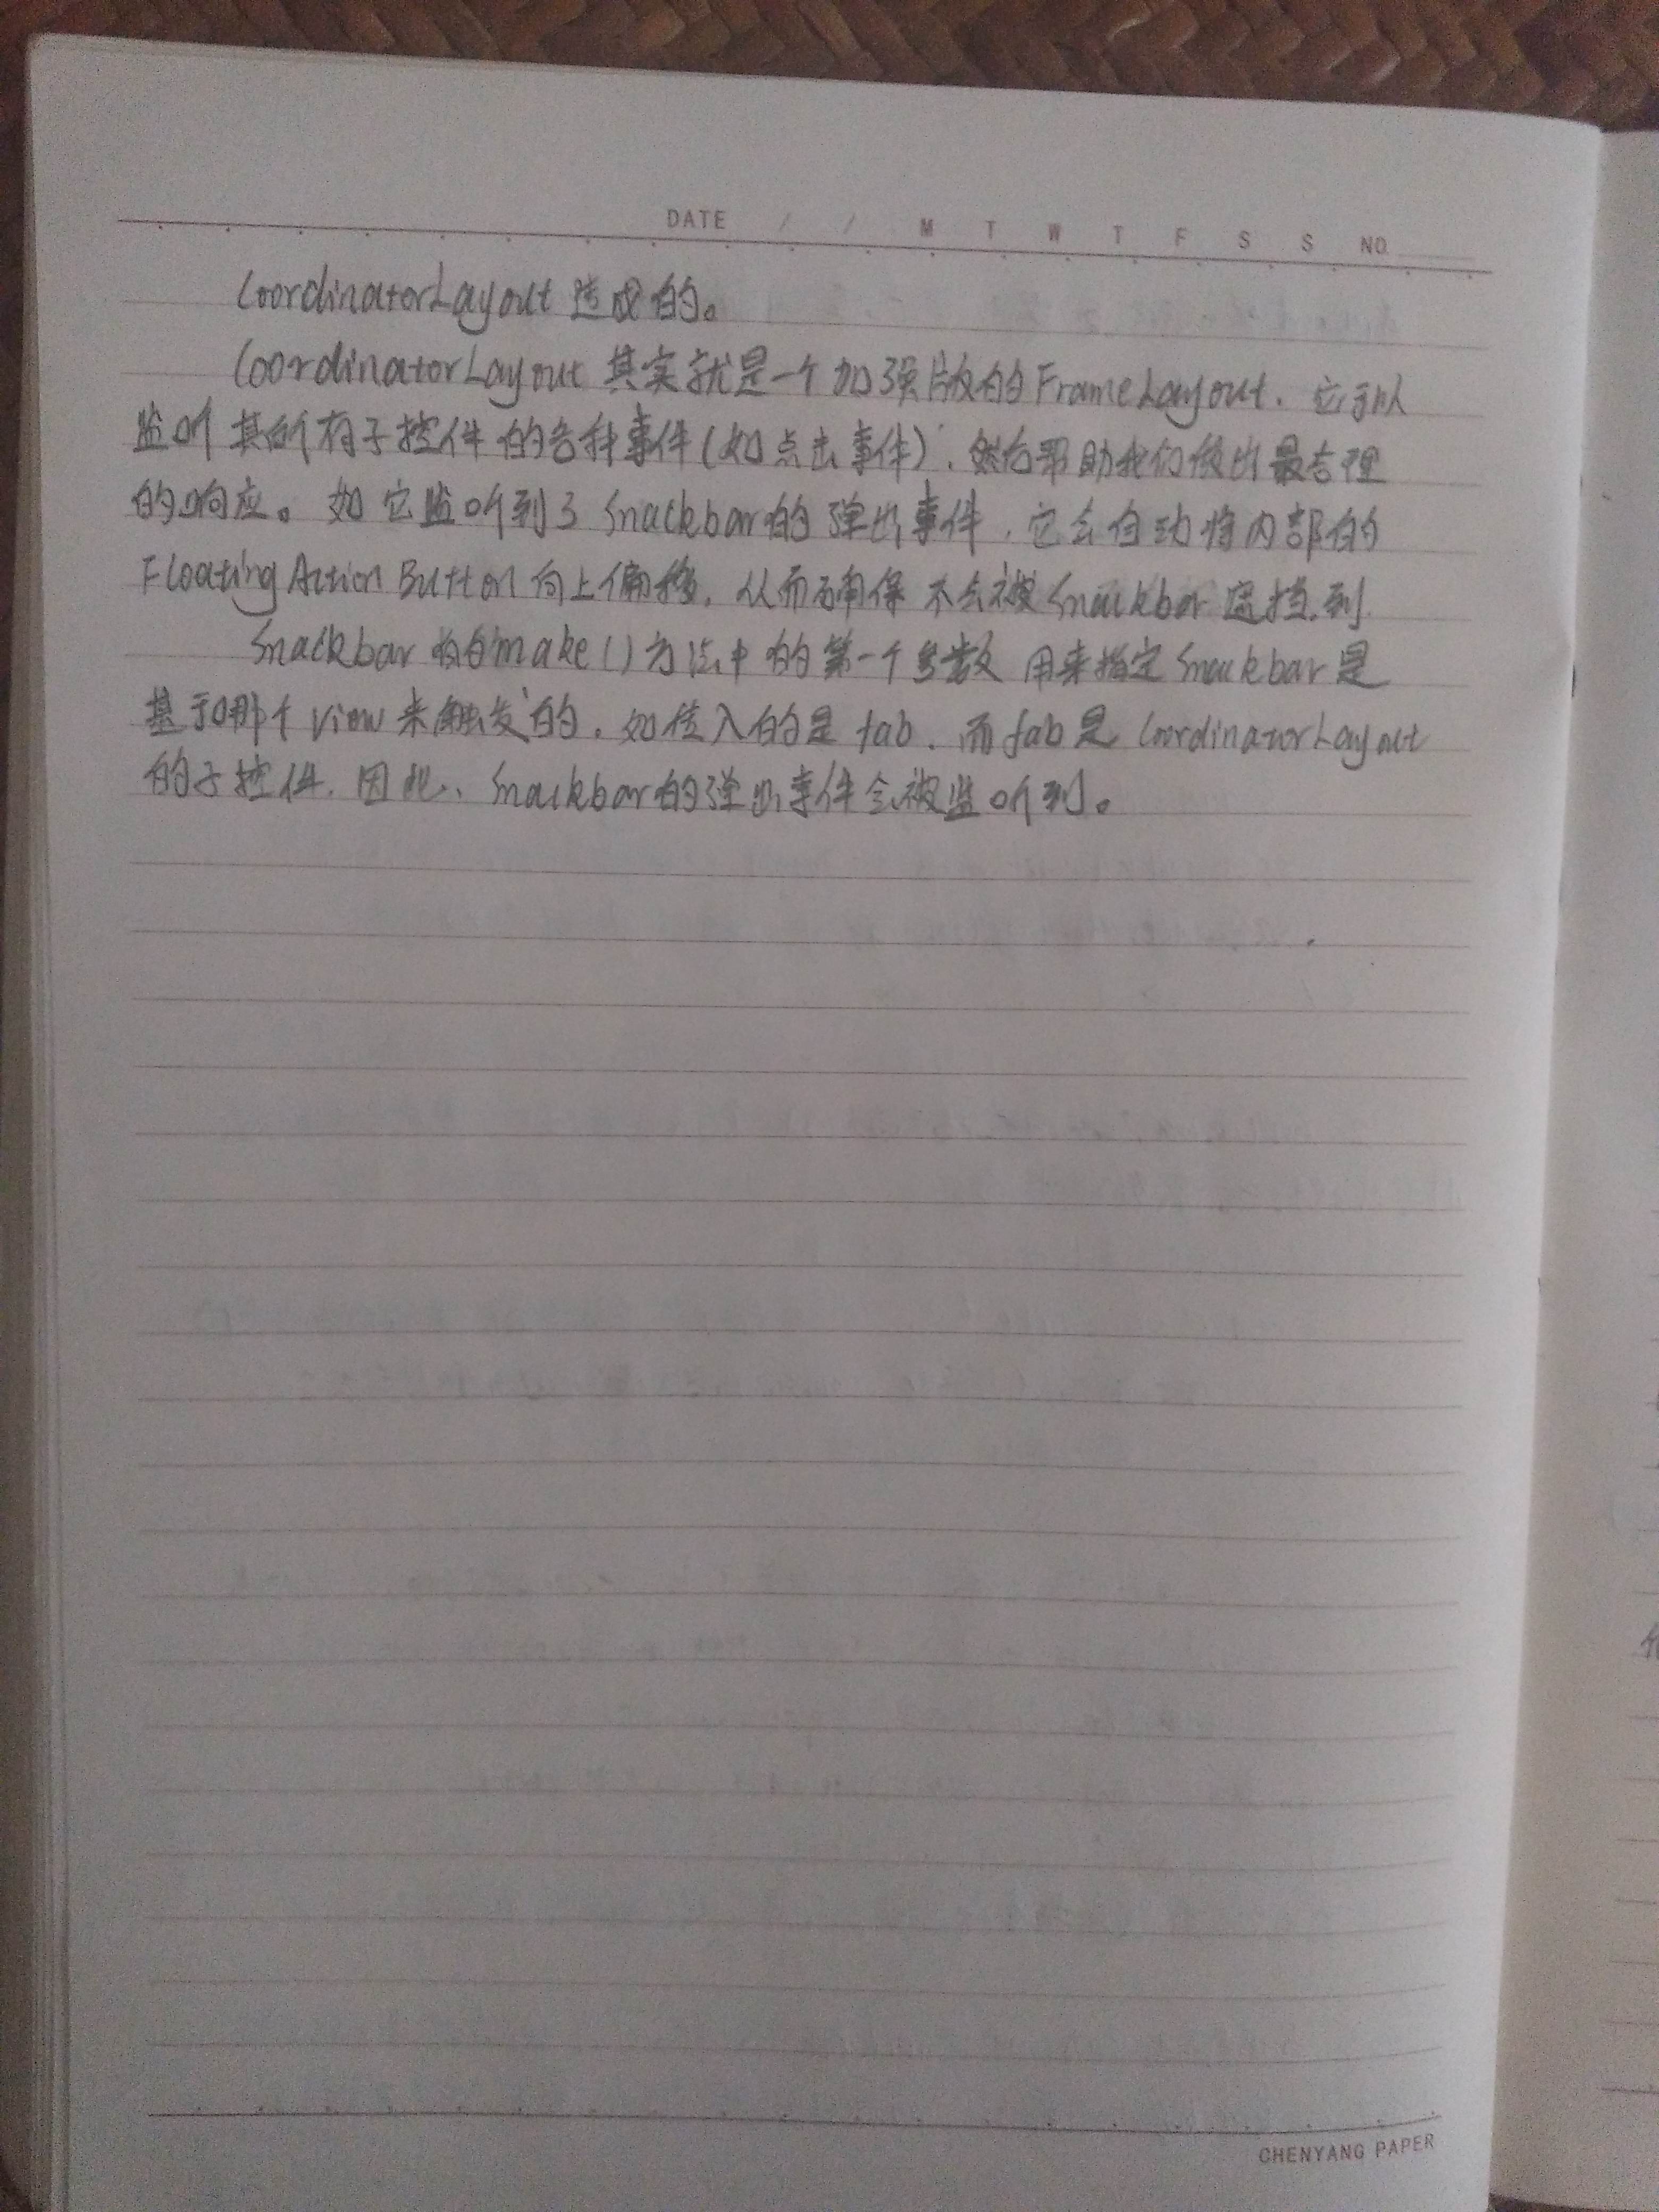 DATE / / M T W T F S S NO.
CoordinatorLayout 造成的。
CoordinatorLayout 其实就是一个加强版的FrameLayout, 它可以
监听其所有子控件的各种事件(如点击事件), 然后帮助我们做出最合理
的响应。如它监听到了Snackbar的弹出事件, 它会自动将内部的
FloatingActionButton向上偏移, 从而确保不会被Snackbar遮挡到.
Snackbar 的make()方法中的第一个参数 用来指定Snackbar是
基于哪个View来触发的, 如传入的是fab, 而fab是CoordinatorLayout
的子控件, 因此, Snackbar的弹出事件会被监听到。
CHENYANG PAPER